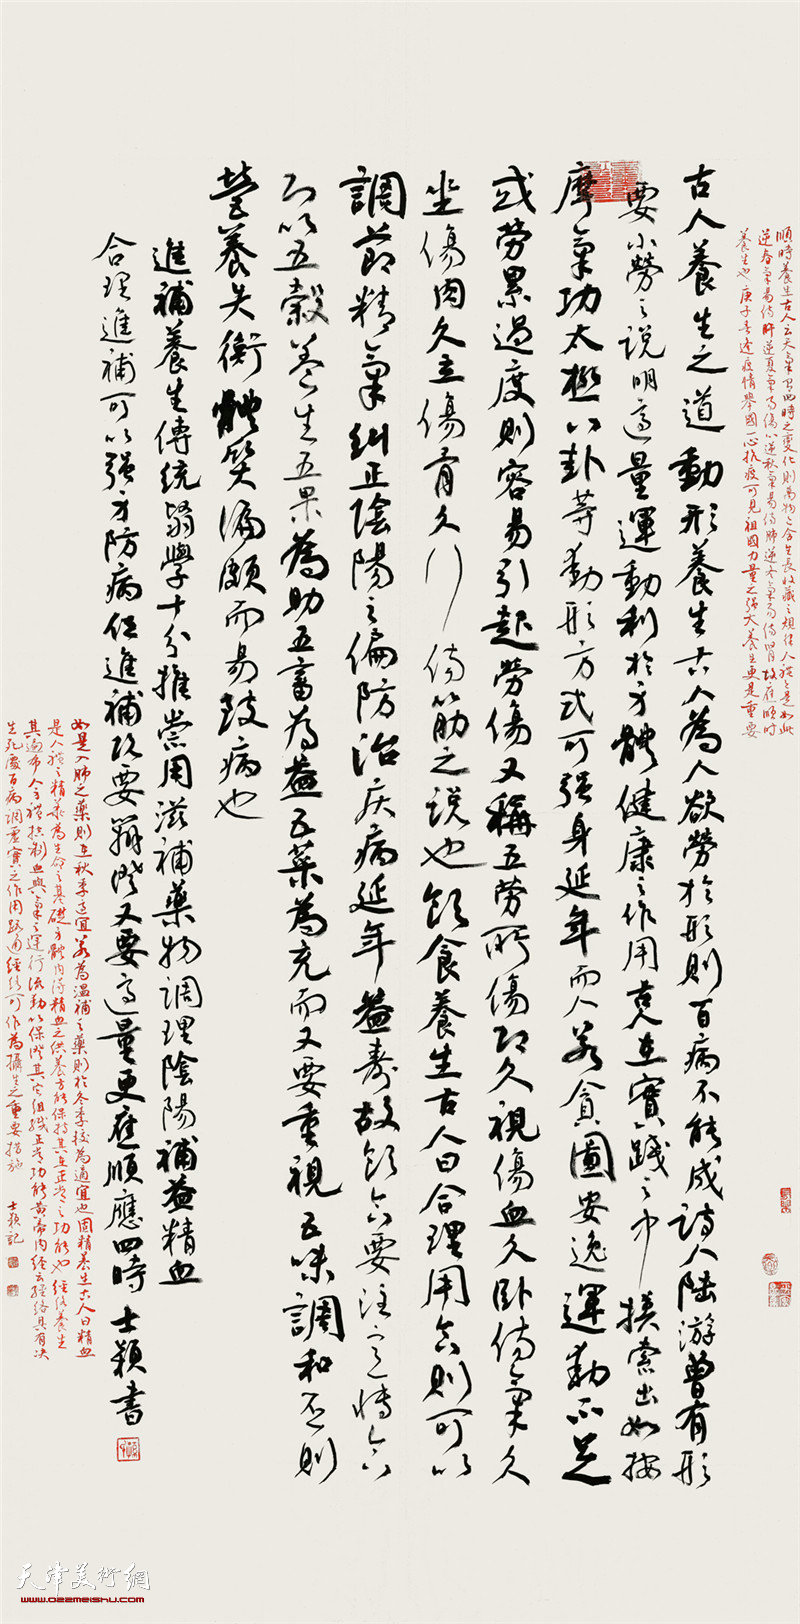 順時養生古人云天氣有四時之變化則萬物之含生長收藏之規律人體亦是如此
逆春氣易傷肝逆夏氣易傷心逆秋氣易傷肺逆冬氣易傷腎故應順時
養生也庚子年逢疫情舉國一心抗疫可見祖國力量之強大養生更是重要
古人養生之道動形養生古人為人欲勞於形則百病不能成詩人陸游曾有形
要小勞之說明適量運動利於身體健康之作用克在實踐之中摸索出如按
摩氣功太極八卦等動形方式可強身延年而人若貪圖安逸運動不足
或勞累過度則容易引起勞傷又稱五勞所傷即久視傷血久卧傷氣久
坐傷肉久立傷骨久行傷筋之說也飲食養生古人曰合理用食則可以
調節精氣糾正陰陽之偏防治疾病延年益壽故飲食要注意博食
而以五穀養生五果為助五畜為益五菜為充而又要重視五味調和否則
營養失衡體質偏頗而易致病也
進補養生傳統醫學十分推崇用滋補藥物調理陰陽補益精血
合理進補可以強身防病但進補須要辨證又要適量更應順應四時 士穎書
如是入肺之藥則在秋季適宜若為溫補之藥則於冬季較為適宜也固精養生古人曰精血
是人體之精華為生命之基礎身體內得精血之供養方能保持其正常之功能也經絡養生
其遍布人全體控制血與氣之運行流動以保證其它組織正常功能黃帝內經云經絡具有决
生死處百病調虛實之作用路通經絡可作為攝生之重要措施 士穎記
天津美術網
www.022meishu.com